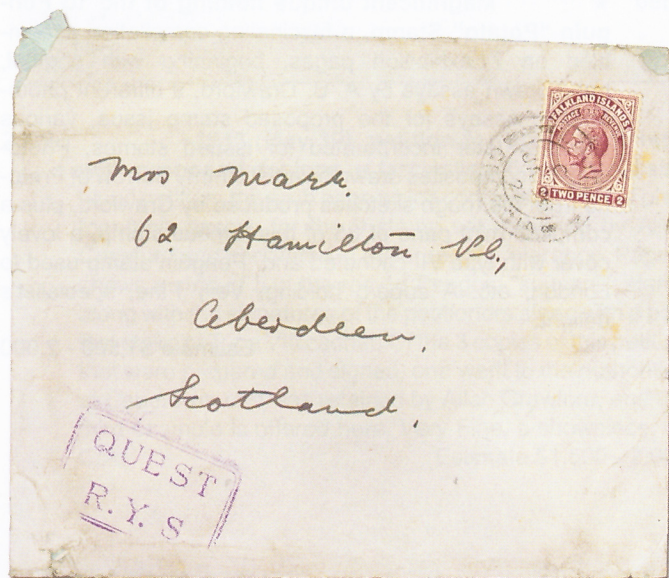 FALKLAND ISLANDS
POSTAGE REVENUE
2 TWO PENCE 2
Mrs Marr.
62 Hamilton Pl.,
Aberdeen,
Scotland.
QUEST
R.Y.S